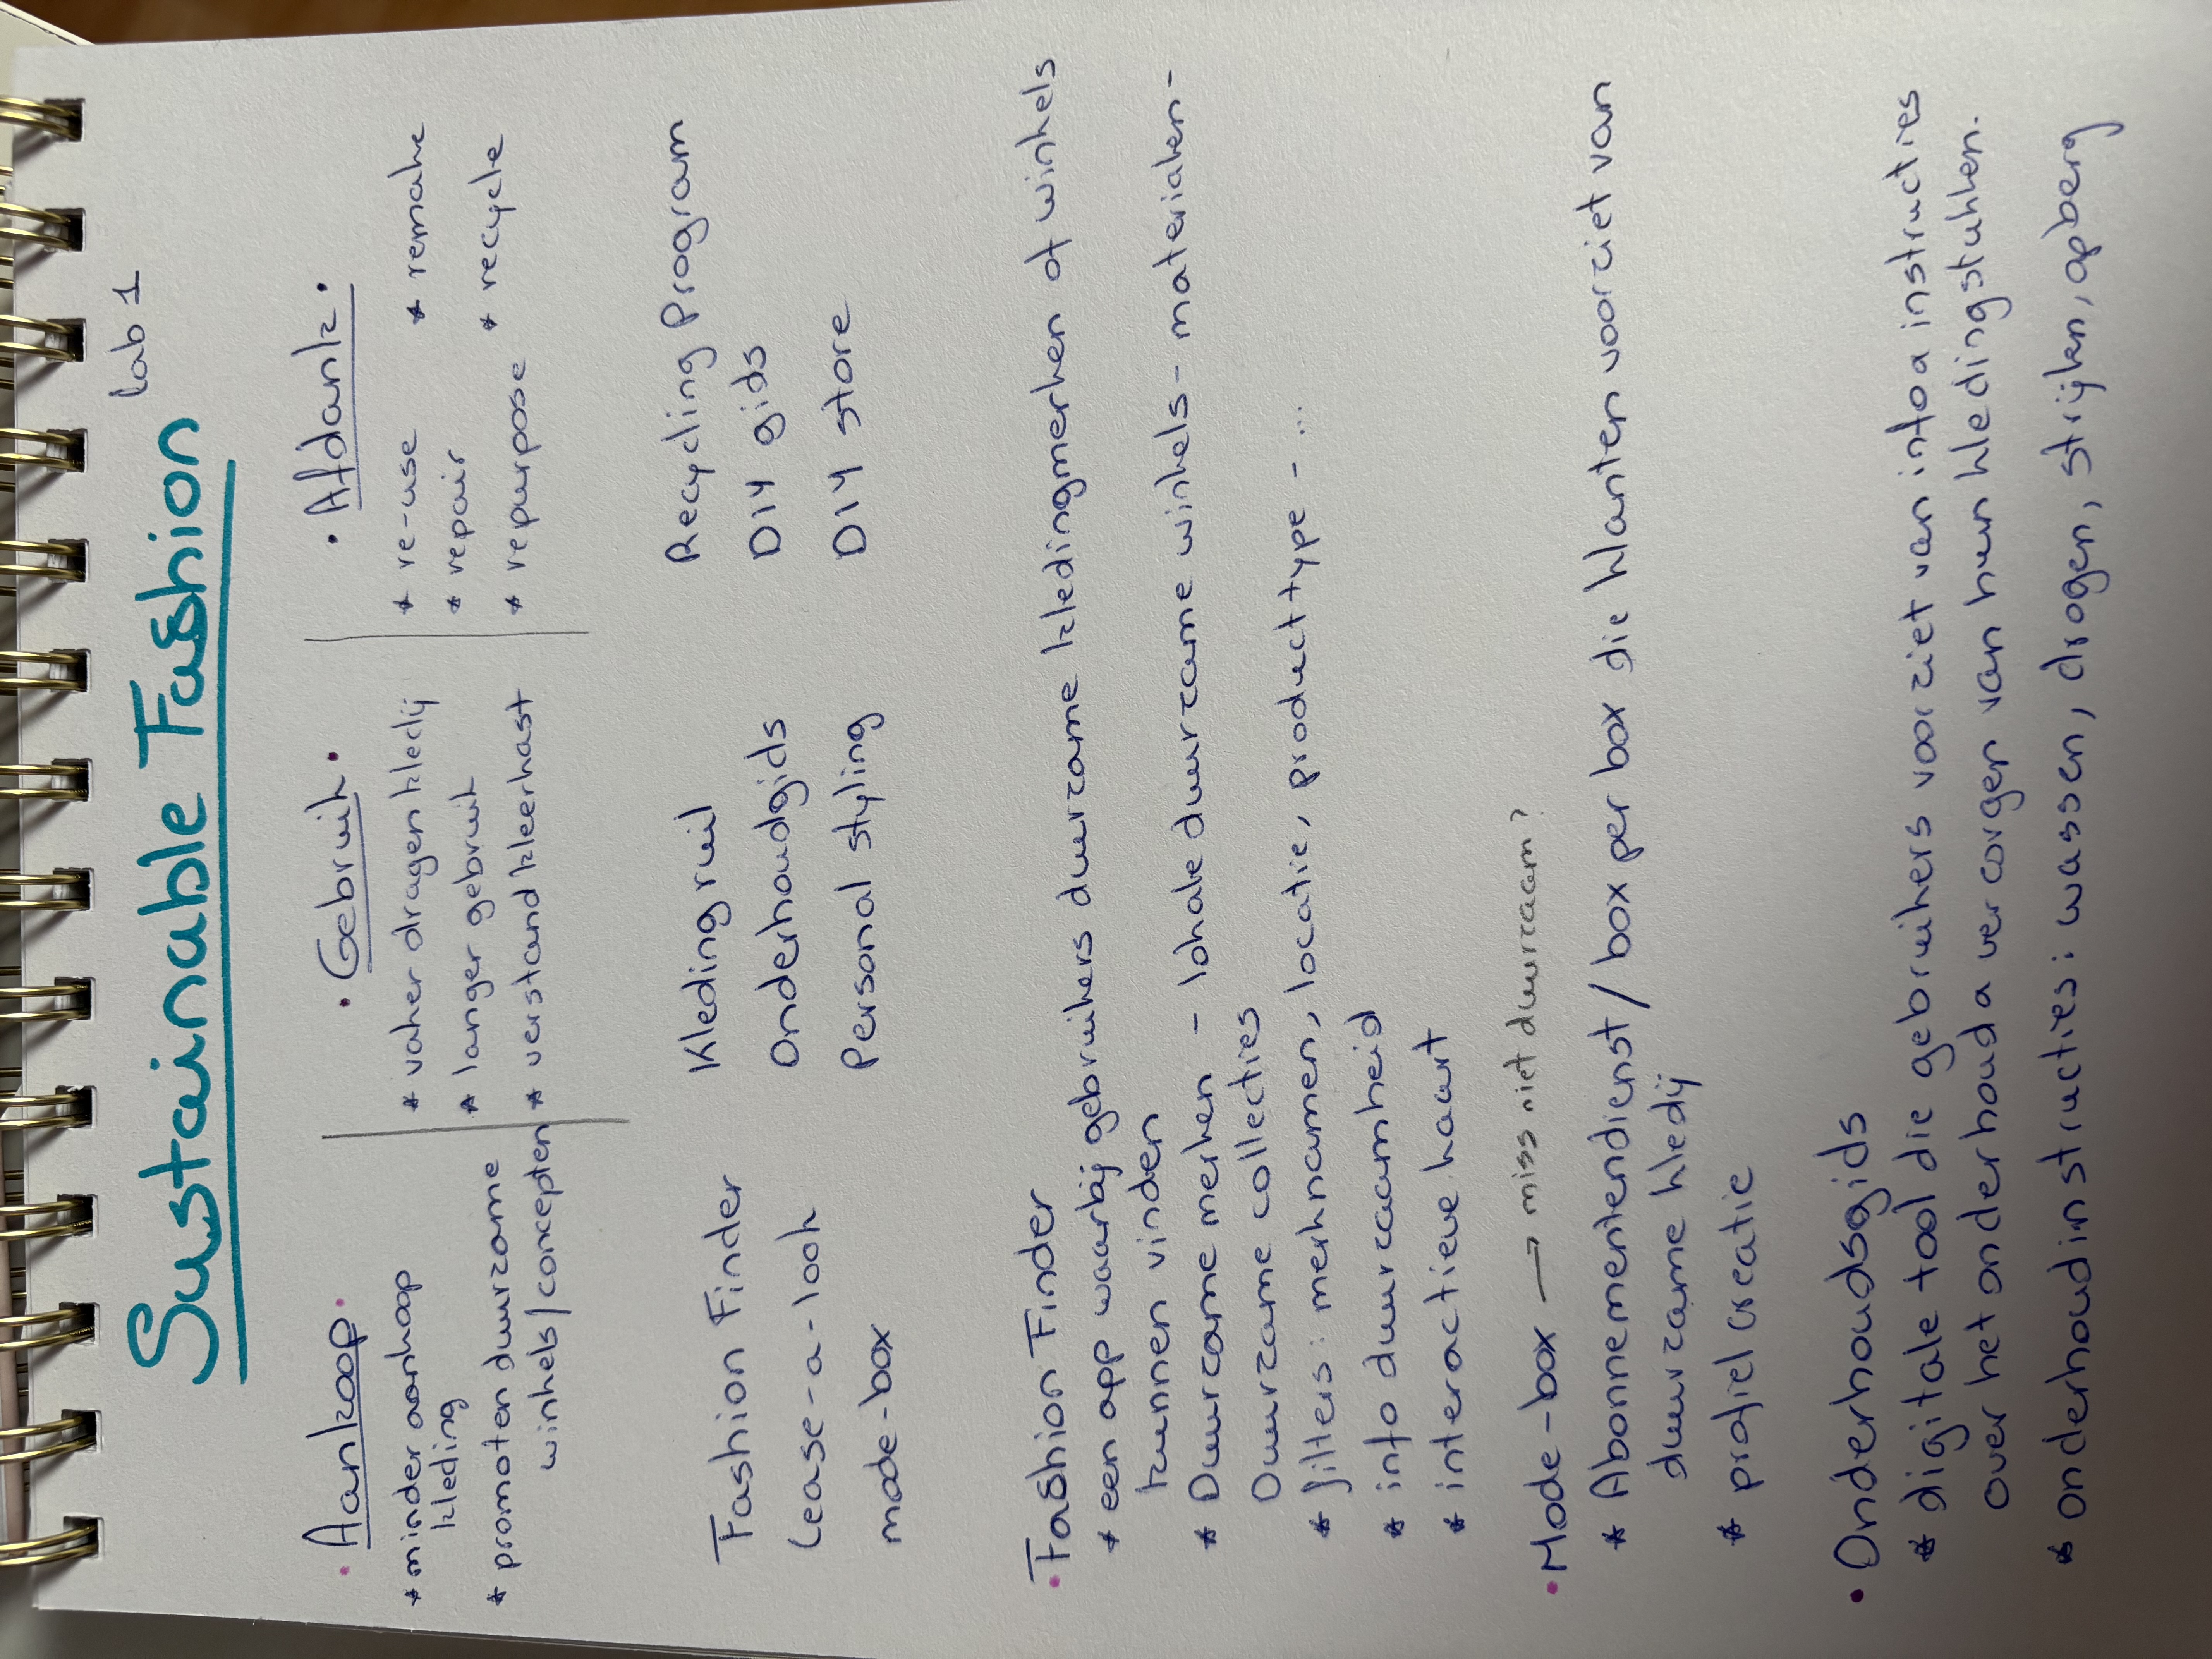 Sustainable Fashion lab 1
Aankoop
* minder aankoop
kleding
* promoten duurzame
winkels/concepten
Gebruik
* vaker dragen kledij
* langer gebruik
* verstand kleerkast
Afdank
* re-use
* repair
* repurpose
* remake
* recycle
Fashion Finder
Lease-a-look
mode-box
Kledingruil
Onderhoudgids
Personal styling
Recycling Program
DIY gids
DIY store
Fashion Finder
* een app waarbij gebruikers duurzame kledingmerken of winkels
kunnen vinden
* Duurzame merken - lokale duurzame winkels - materialen -
Duurzame collecties
* filters: merknamen, locatie, product type - ...
* info duurzaamheid
* interactieve kaart
Mode-box → miss niet duurzaam?
* Abonnementendienst / box per box die klanten voorziet van
duurzame kledij
* profiel creatie
Onderhoudsgids
* digitale tool die gebruikers voorziet van info a instructies
over het onderhoud a verzorgen van hun kledingstukken.
* onderhoudinstructies: wassen, drogen, strijken, opberg